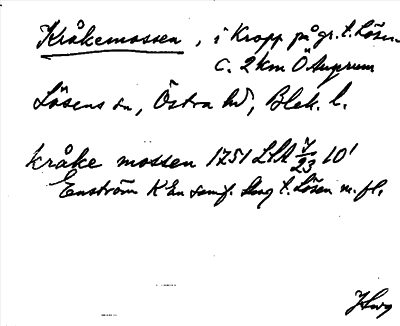 Kråkemossen, i Kropp på gr. t. Lösen
c. 2 km Ö Augerum
Lösens sn, Östra hd, Blek. l.
kråke mossen 1751 LSA 7/23 10¹
Enström K En samf. Skog t. Lösen m. fl.